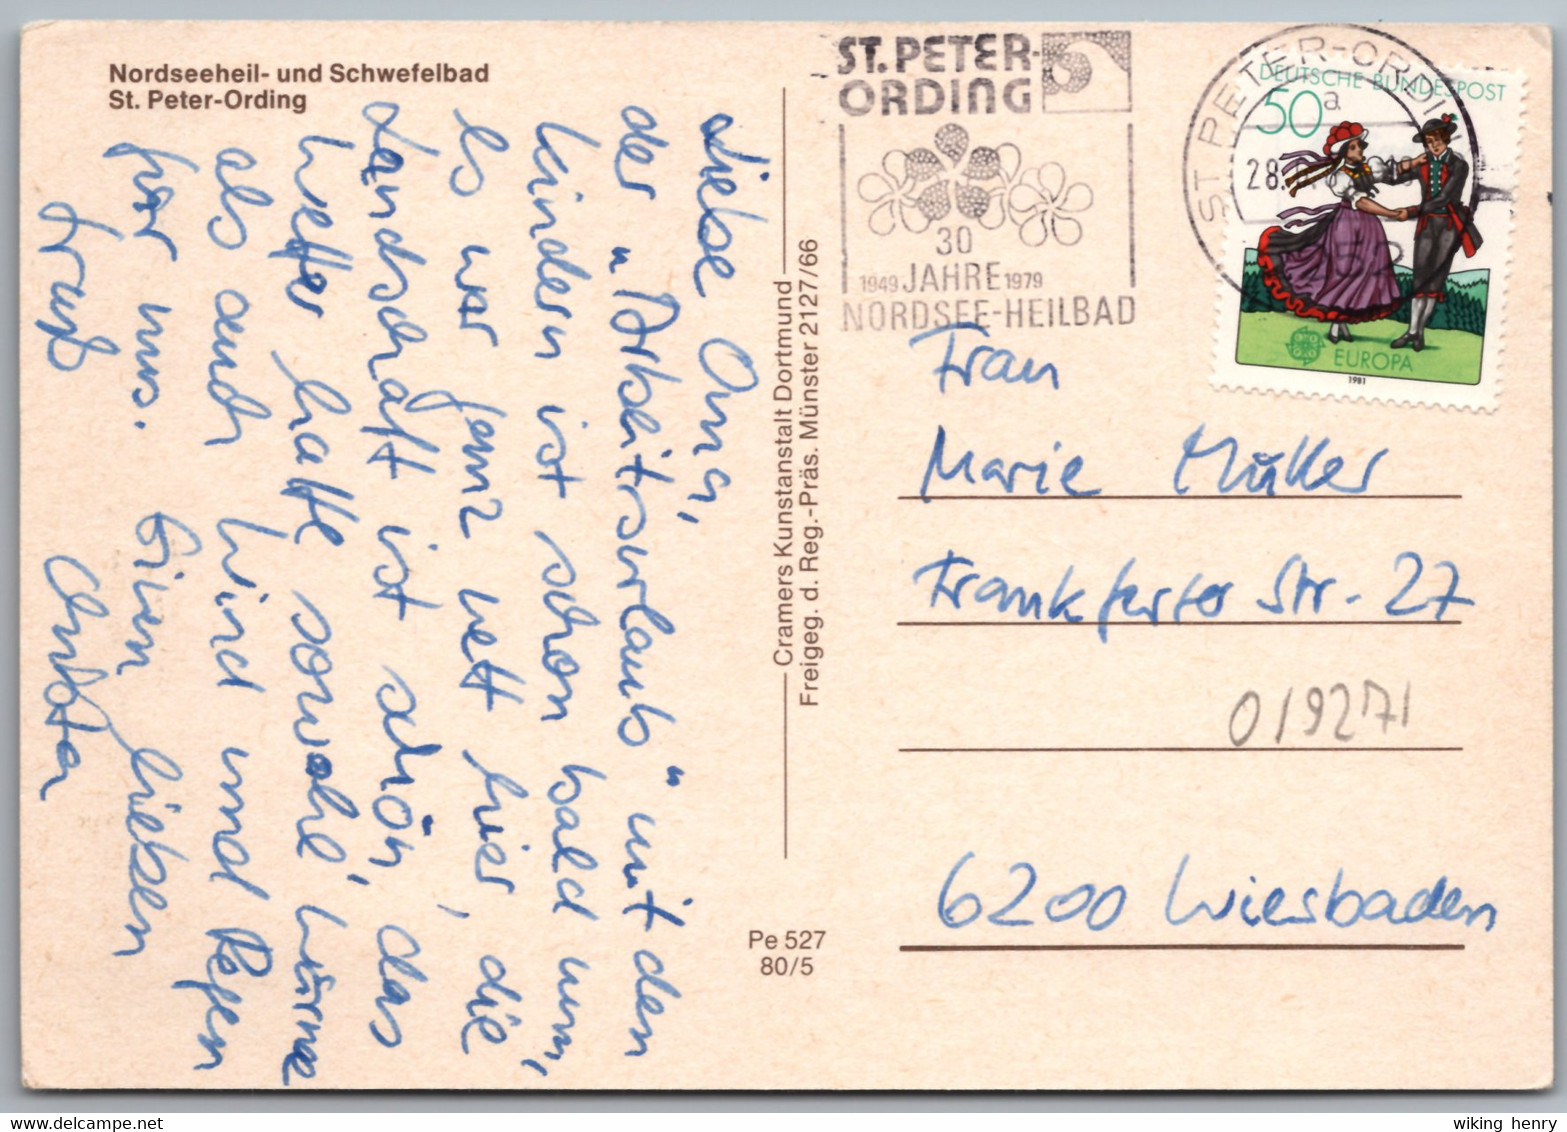 Nordseeheil- und Schwefelbad
St. Peter-Ording
Liebe Oma,
der "Arbeitsurlaub" mit den
Kindern ist schon bald um,
Es war ganz nett hier, die
Landschaft ist schön, das
Wetter hatte sowohl Wärme
als auch Wind und Regen
für uns. Einen lieben
Gruß Christa
Cramers Kunstanstalt Dortmund
Freigeg. d. Reg.-Präs. Münster 2127/66
Pe 527
80/5
ST. PETER-
ORDING
30
1949 JAHRE 1979
NORDSEE-HEILBAD
ST. PETER-ORDING
a
28.
DEUTSCHE BUNDESPOST
50
EUROPA
1981
Frau
Marie Müller
Frankfurter Str. 27
019271
6200 Wiesbaden
wiking henry